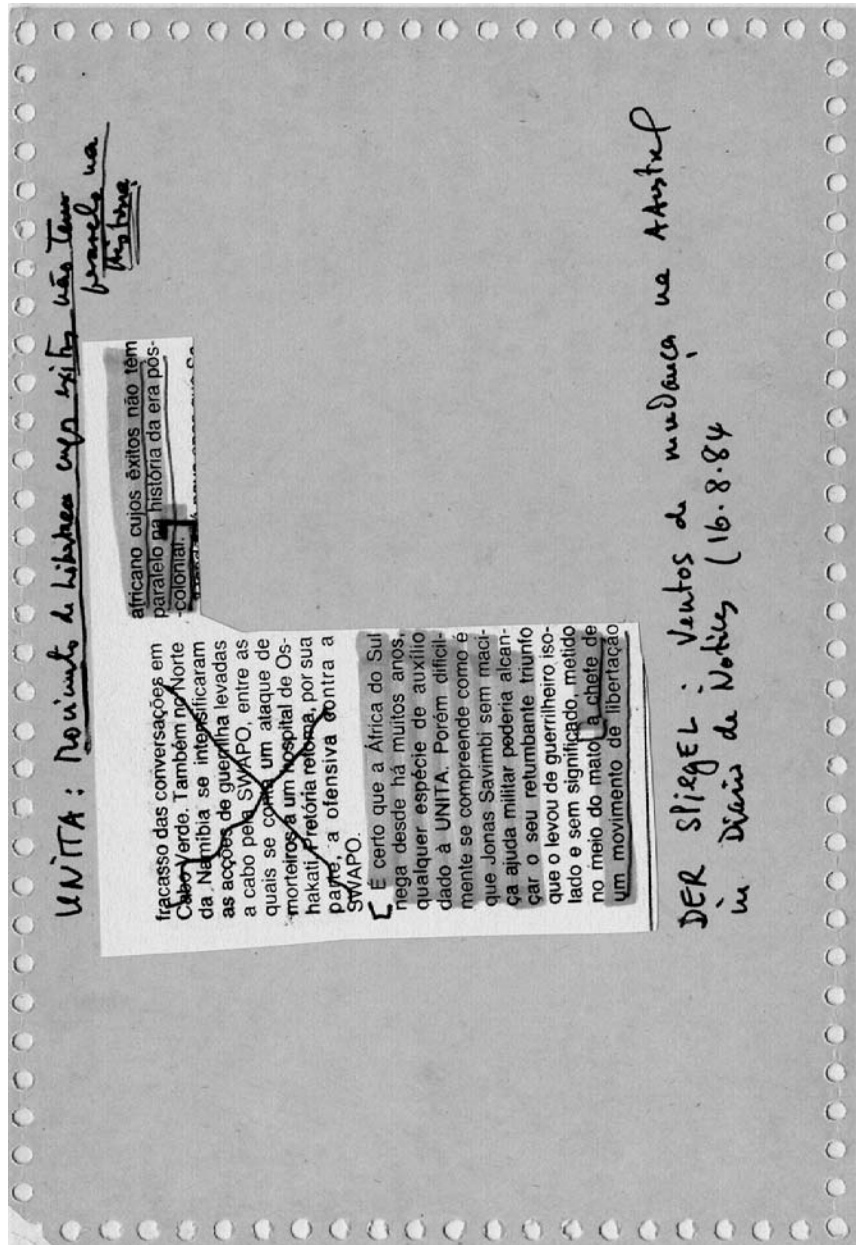 UNITA: Movimento de Libertação cujos êxitos não tem
paralelo na
história
fracasso das conversações em
Cabo Verde. Também no Norte
da Namíbia se intensificaram
as acções de guerrilha levadas
a cabo pela SWAPO, entre as
quais se conta um ataque de
morteiros a um hospital de Os-
hakati. Pretória retoma, por sua
parte, a ofensiva contra a
SWAPO.
É certo que a África do Sul
nega desde há muitos anos,
qualquer espécie de auxílio
dado à UNITA. Porém dificil-
mente se compreende como é
que Jonas Savimbi sem maci-
ça ajuda militar poderia alcan-
çar o seu retumbante triunfo
que o levou de guerrilheiro iso-
lado e sem significado, metido
no meio do mato, a chefe de
um movimento de libertação
africano cujos êxitos não têm
paralelo na história da era pós-
-colonial.
DER SPIEGEL: Ventos de mudança na A Austral
in Diário de Notícias (16.8.84